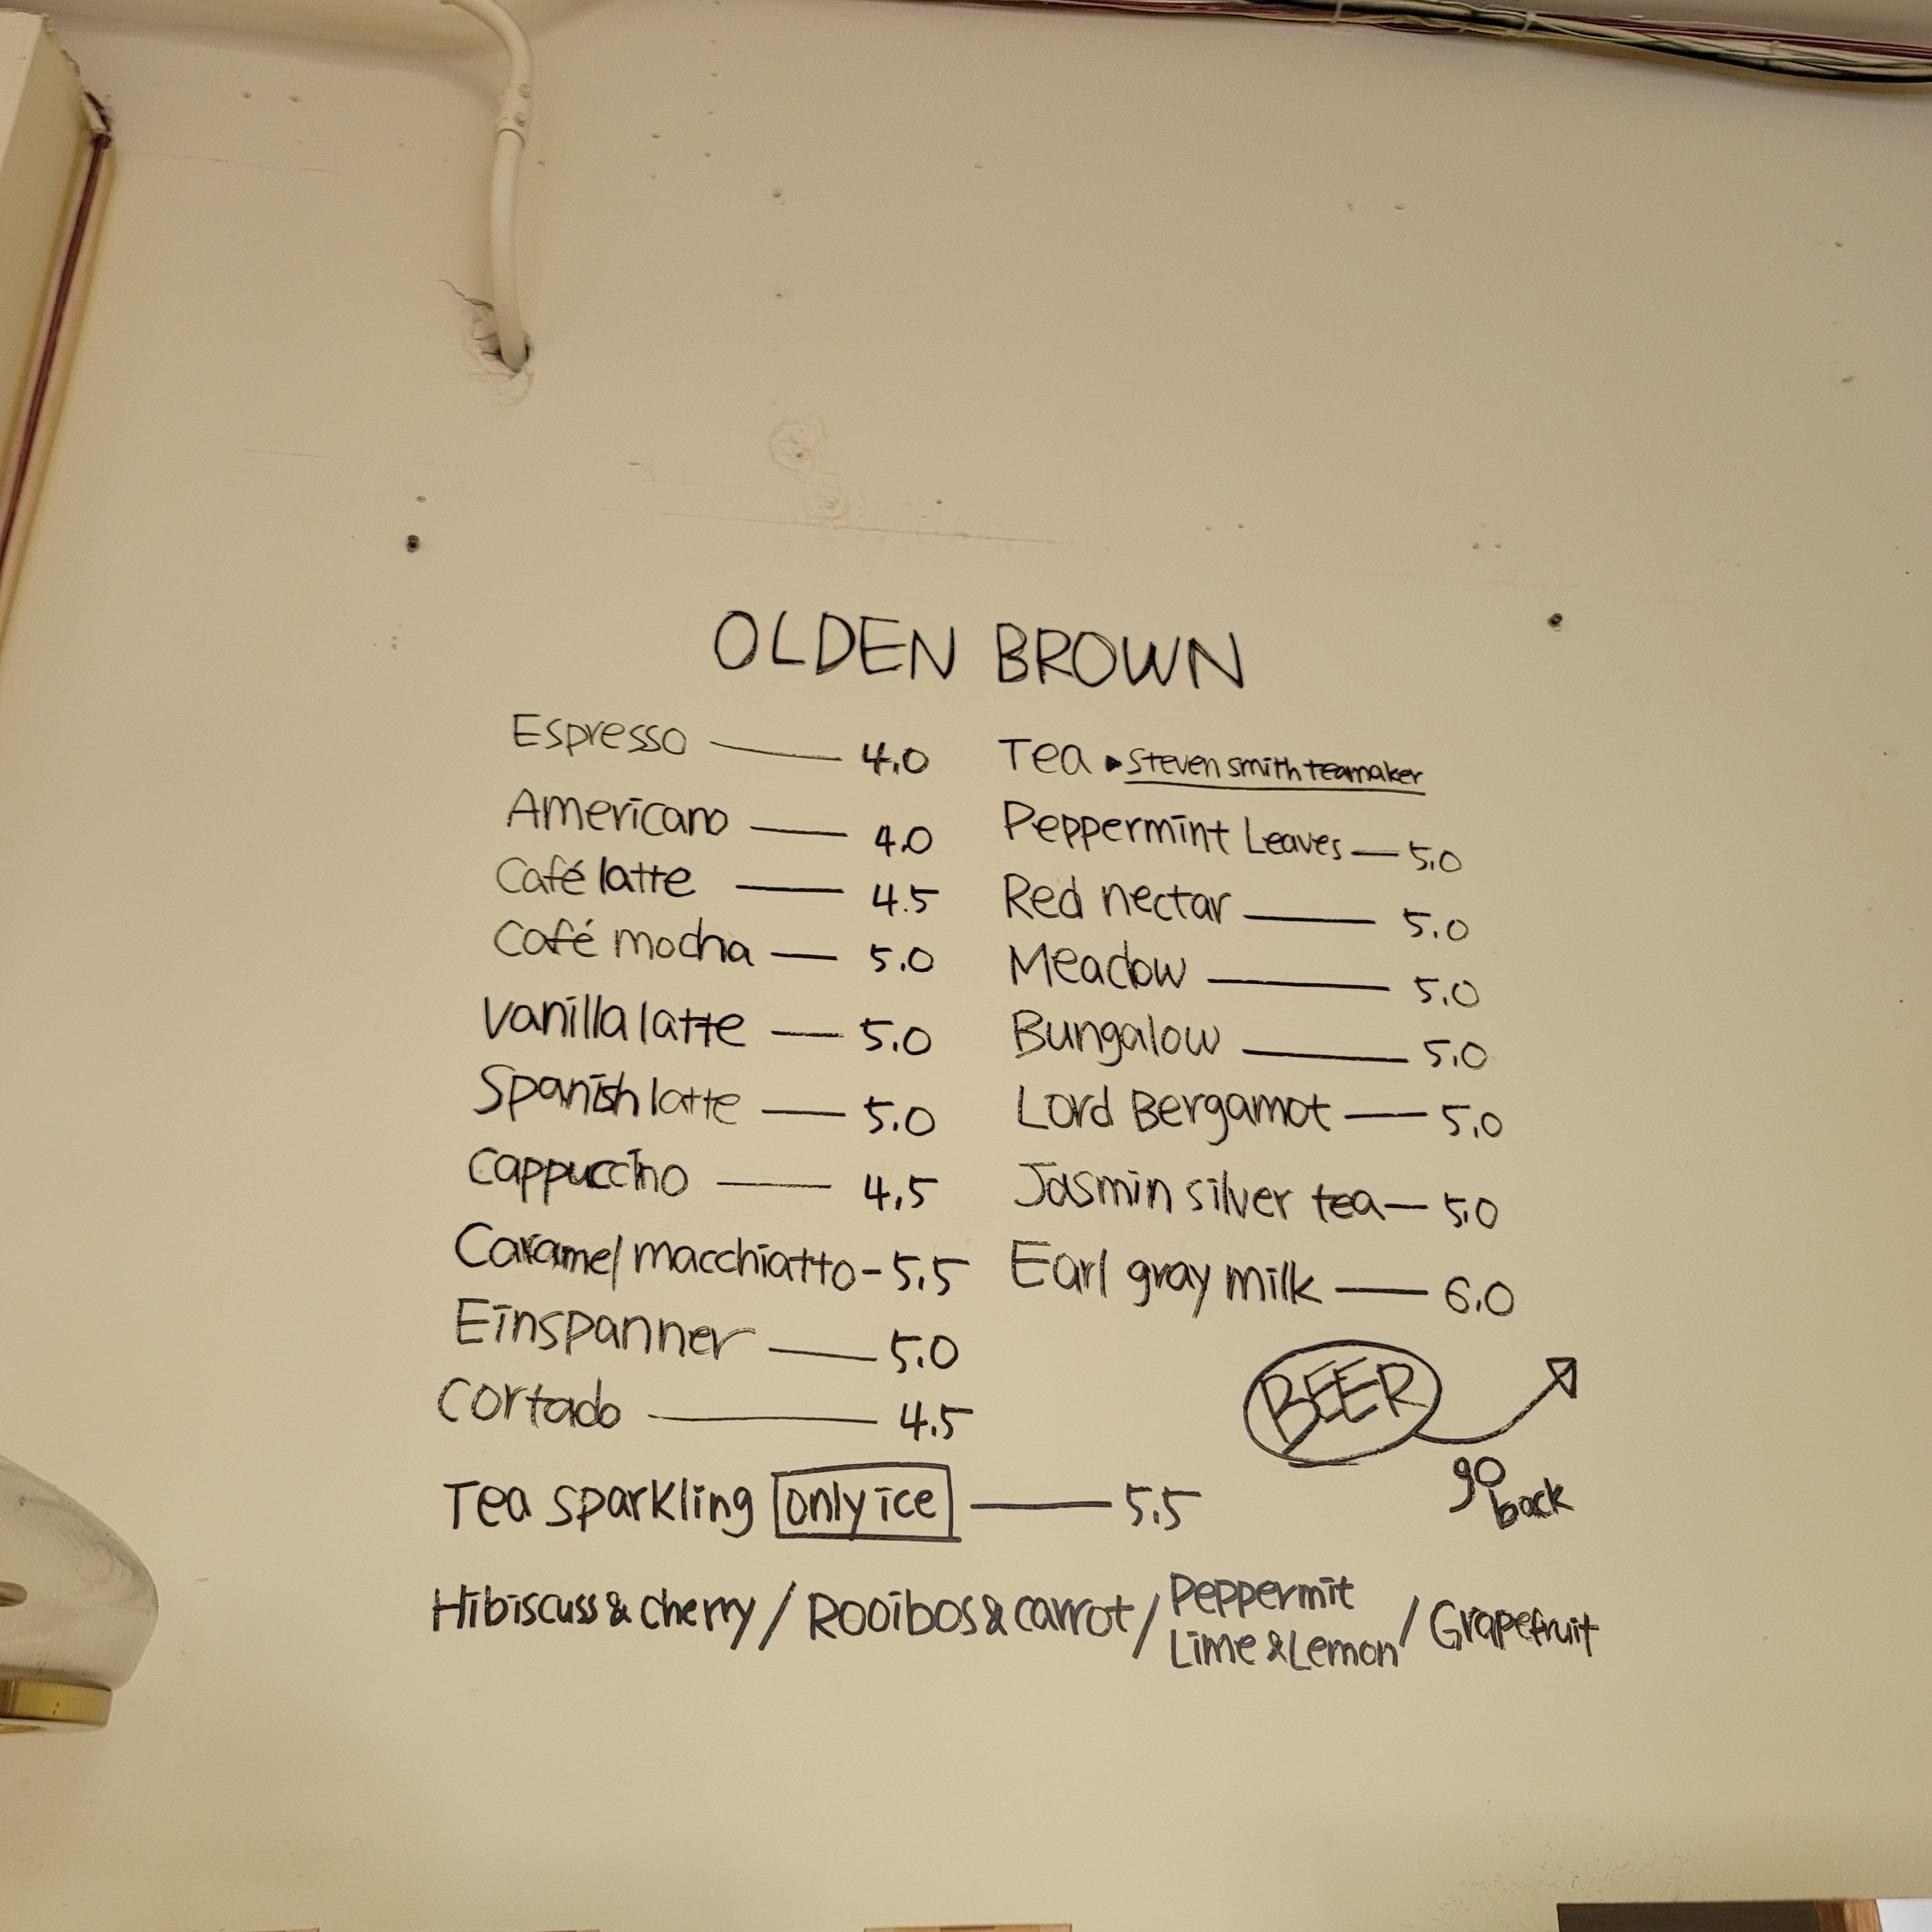 OLDEN BROWN
Espresso 4.0
Americano 4.0
Café latte 4.5
Café mocha 5.0
Vanilla latte 5.0
Spanish latte 5.0
Cappuccino 4.5
Caramel macchiatto - 5.5
Einspanner 5.0
Cortado 4.5
Tea ▸ Steven smith teamaker
Peppermint Leaves 5.0
Red nectar 5.0
Meadow 5.0
Bungalow 5.0
Lord Bergamot 5.0
Jasmin silver tea 5.0
Earl gray milk 6.0
BEER
go
back
Tea sparkling only ice 5.5
Hibiscuss & cherry / Rooibos & carrot / Peppermit
Lime & Lemon / Grapefruit